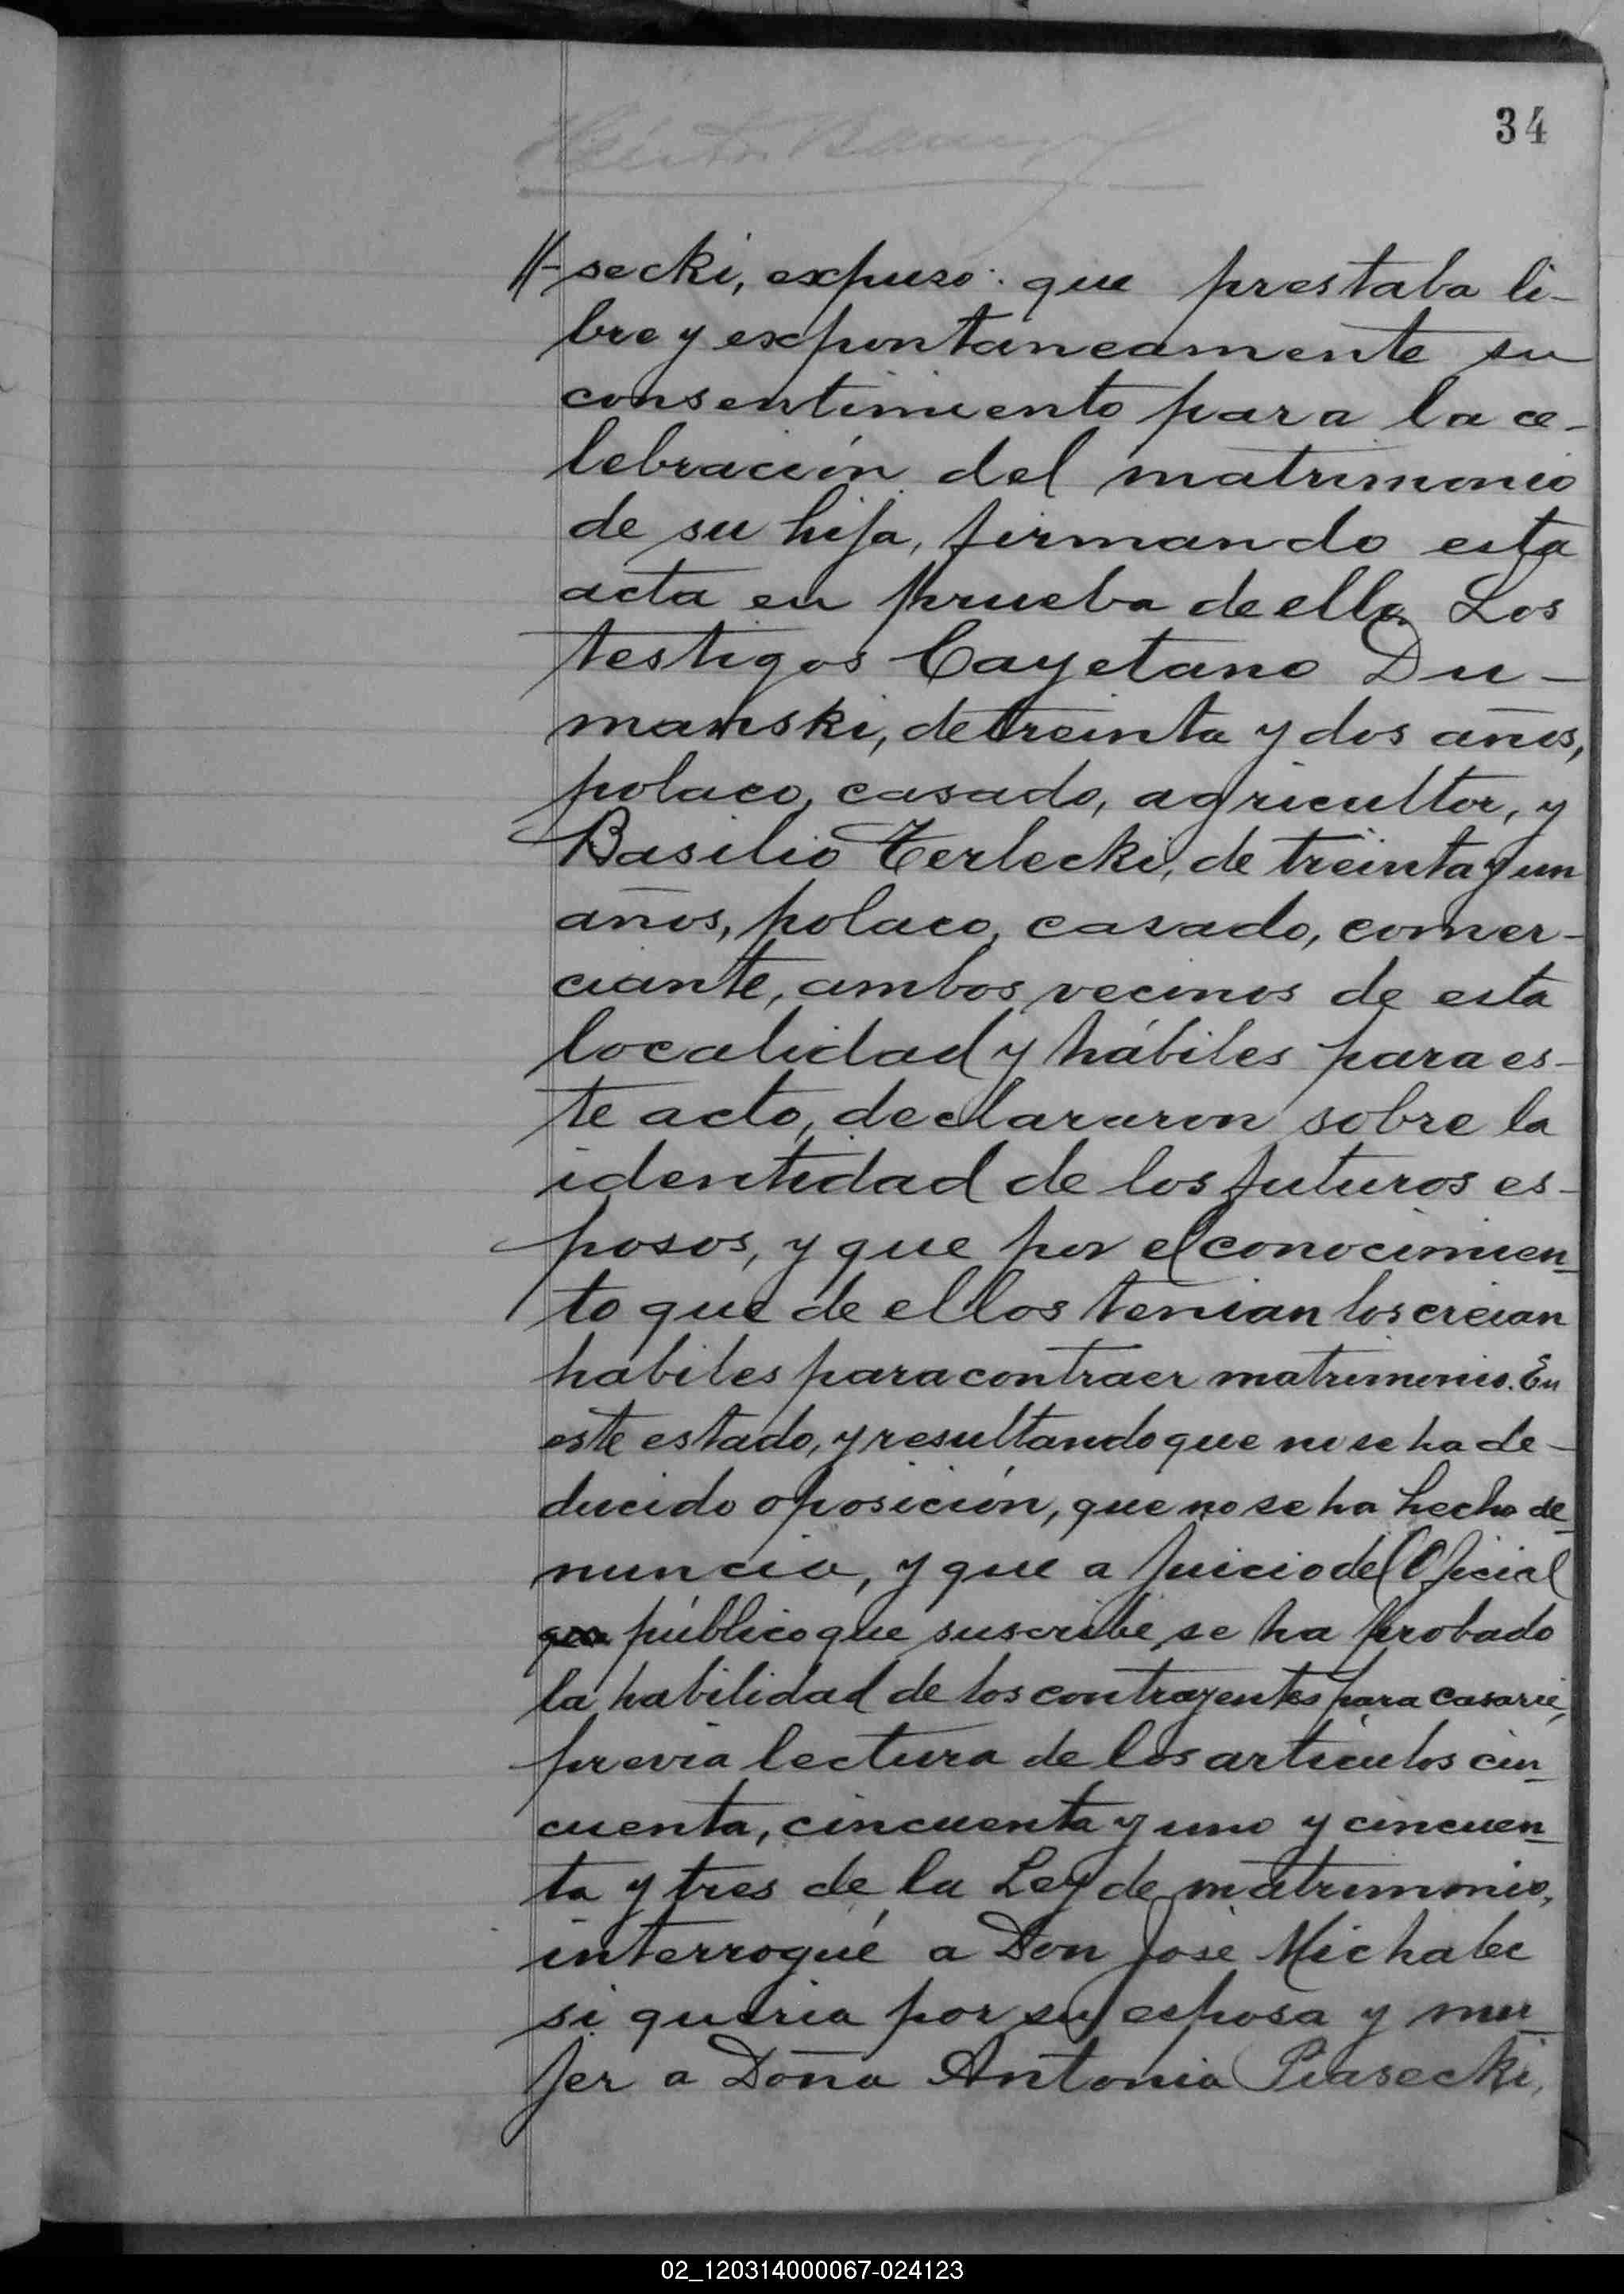 34
//-secki, expuso: que prestaba li-
bre y expontaneamente su
consentimiento para la ce-
lebración del matrimonio
de su hija, firmando esta
acta en prueba de ello. Los
testigos Cayetano Du-
manski, de treinta y dos años,
polaco, casado, agricultor, y
Basilio Terlecki, de treinta y un
años, polaco, casado, comer-
ciante, ambos vecinos de esta
localidad y hábiles para es-
te acto, declararon sobre la
identidad de los futuros es-
posos, y que por el conocimien-
to que de ellos tenian los creian
habiles para contraer matrimonio. En
este estado, y resultando que no se ha de-
ducido oposición, que no se ha hecho de-
nuncia, y que a juicio del Oficial
público que suscribe se ha probado
la habilidad de los contrayentes para casarse,
previa lectura de los articulos cin-
cuenta, cincuenta y uno y cincuen-
ta y tres de la Ley de matrimonio,
interrogué a Don José Michalec
si queria por su esposa y mu-
jer a Doña Antonia Piasecki,
02_120314000067-024123